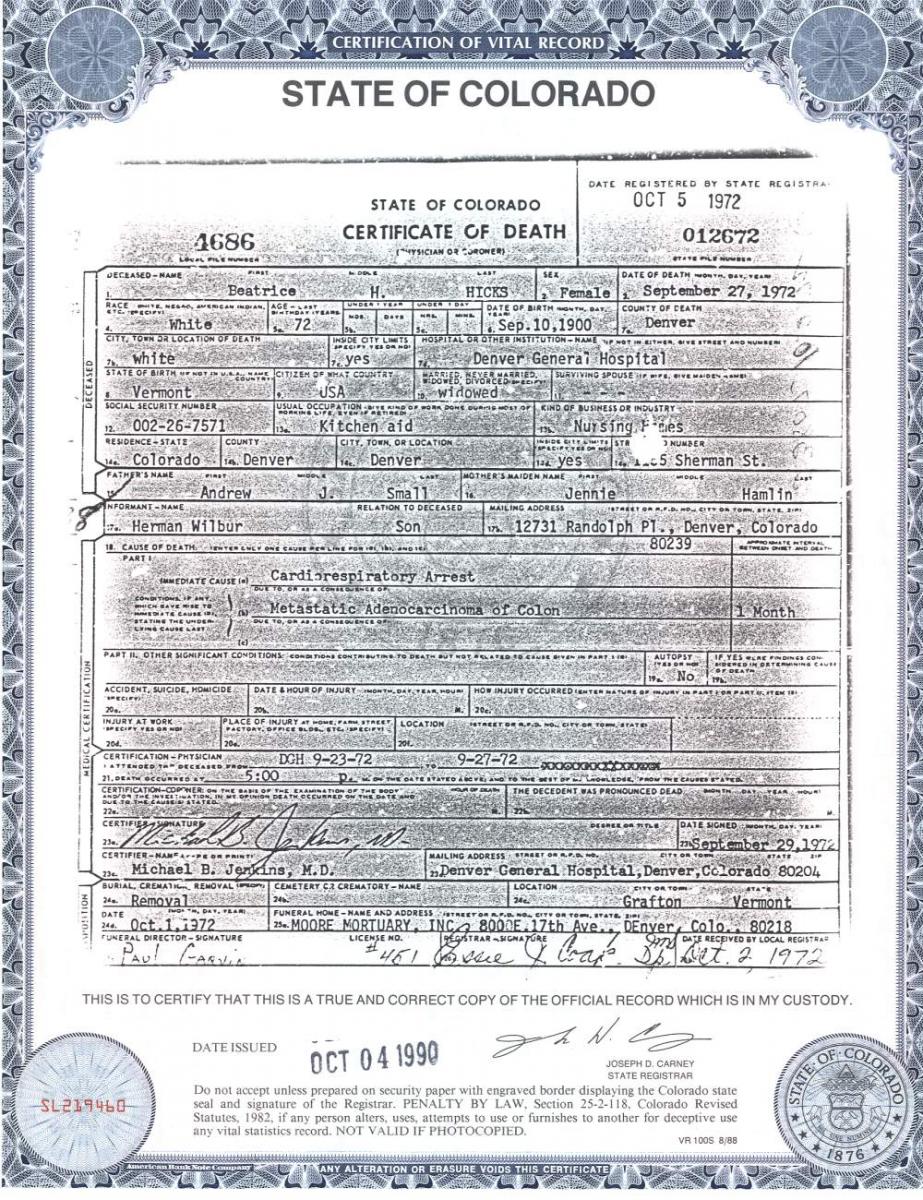 CERTIFICATION OF VITAL RECORD
STATE OF COLORADO
DATE REGISTERED BY STATE REGISTRAR
OCT 5 1972
STATE OF COLORADO
CERTIFICATE OF DEATH
(PHYSICIAN OR CORONER)
4686
LOCAL FILE NUMBER
012672
STATE FILE NUMBER
DECEASED—NAME FIRST MIDDLE LAST SEX DATE OF DEATH (MONTH, DAY, YEAR)
1. Beatrice H. HICKS 2. Female 3. September 27, 1972
RACE WHITE, NEGRO, AMERICAN INDIAN, ETC. (SPECIFY) AGE—LAST BIRTHDAY (YEARS) UNDER 1 YEAR UNDER 1 DAY DATE OF BIRTH (MONTH, DAY, YEAR) COUNTY OF DEATH
MOS. DAYS HRS. MINS.
4. White 5a. 72 5b. 5c. 6. Sep.10,1900 7a. Denver
CITY, TOWN OR LOCATION OF DEATH INSIDE CITY LIMITS (SPECIFY YES OR NO) HOSPITAL OR OTHER INSTITUTION—NAME (IF NOT IN EITHER, GIVE STREET AND NUMBER)
7b. white yes Denver General Hospital
STATE OF BIRTH (IF NOT IN U.S.A., NAME COUNTRY) CITIZEN OF WHAT COUNTRY MARRIED, NEVER MARRIED, WIDOWED, DIVORCED (SPECIFY) SURVIVING SPOUSE (IF WIFE, GIVE MAIDEN NAME)
8. Vermont 9. USA 10. widowed 11. - - -
SOCIAL SECURITY NUMBER USUAL OCCUPATION (GIVE KIND OF WORK DONE DURING MOST OF WORKING LIFE, EVEN IF RETIRED) KIND OF BUSINESS OR INDUSTRY
12. 002-26-7571 13a. Kitchen aid 13b. Nursing
RESIDENCE—STATE COUNTY CITY, TOWN, OR LOCATION INSIDE CITY LIMITS (SPECIFY YES OR NO) NUMBER
14a. Colorado 14b. Denver 14c. Denver yes 5 Sherman St.
FATHER'S NAME FIRST MIDDLE LAST MOTHER'S MAIDEN NAME FIRST MIDDLE LAST
15. Andrew J. Small 16. Jennie Hamlin
INFORMANT—NAME RELATION TO DECEASED MAILING ADDRESS (STREET OR R.F.D. NO., CITY OR TOWN, STATE, ZIP)
17a. Herman Wilbur Son 17b. 12731 Randolph Pl., Denver, Colorado
80239
18. CAUSE OF DEATH: (ENTER ONLY ONE CAUSE PER LINE FOR (a), (b), AND (c)) APPROXIMATE INTERVAL BETWEEN ONSET AND DEATH
PART I
IMMEDIATE CAUSE (a) Cardiorespiratory Arrest
DUE TO, OR AS A CONSEQUENCE OF:
CONDITIONS, IF ANY, WHICH GAVE RISE TO IMMEDIATE CAUSE (a), STATING THE UNDERLYING CAUSE LAST
(b) Metastatic Adenocarcinoma of Colon 1 Month
DUE TO, OR AS A CONSEQUENCE OF:
(c)
PART II. OTHER SIGNIFICANT CONDITIONS: CONDITIONS CONTRIBUTING TO DEATH BUT NOT RELATED TO CAUSE GIVEN IN PART I (a) AUTOPSY (YES OR NO) IF YES WERE FINDINGS CONSIDERED IN DETERMINING CAUSE OF DEATH
19a. No 19b.
ACCIDENT, SUICIDE, HOMICIDE (SPECIFY) DATE & HOUR OF INJURY (MONTH, DAY, YEAR, HOUR) HOW INJURY OCCURRED (ENTER NATURE OF INJURY IN PART I OR PART II, ITEM 18)
20a. 20b. M. 20c.
INJURY AT WORK (SPECIFY YES OR NO) PLACE OF INJURY AT HOME, FARM, STREET, FACTORY, OFFICE BLDG., ETC. (SPECIFY) LOCATION (STREET OR R.F.D. NO., CITY OR TOWN, STATE)
20d. 20e. 20f.
CERTIFICATION—PHYSICIAN
I ATTENDED THE DECEASED FROM DGH 9-23-72 TO 9-27-72
21. DEATH OCCURRED AT 5:00 p. M. ON THE DATE STATED ABOVE, AND TO THE BEST OF MY KNOWLEDGE, FROM THE CAUSES STATED.
CERTIFICATION—CORONER: ON THE BASIS OF THE EXAMINATION OF THE BODY AND/OR THE INVESTIGATION, IN MY OPINION DEATH OCCURRED ON THE DATE AND DUE TO THE CAUSE(S) STATED. HOUR OF DEATH THE DECEDENT WAS PRONOUNCED DEAD (MONTH, DAY, YEAR, HOUR)
22a. M. 22b. M.
CERTIFIER—SIGNATURE DEGREE OR TITLE DATE SIGNED (MONTH, DAY, YEAR)
23a. Michael B. Jenkins, MD September 29,1972
CERTIFIER—NAME (TYPE OR PRINT) MAILING ADDRESS STREET OR R.F.D. NO. CITY OR TOWN STATE ZIP
23c. Michael B. Jenkins, M.D. Denver General Hospital,Denver,Colorado 80204
BURIAL, CREMATION, REMOVAL (SPECIFY) CEMETERY OR CREMATORY—NAME LOCATION CITY OR TOWN STATE
24a. Removal 24b. 24c. Grafton Vermont
DATE (MONTH, DAY, YEAR) FUNERAL HOME—NAME AND ADDRESS (STREET OR R.F.D. NO., CITY OR TOWN, STATE, ZIP)
24d. Oct.1,1972 25a. MOORE MORTUARY, INC. 800E.17th Ave., DEnver, Colo. 80218
FUNERAL DIRECTOR—SIGNATURE LICENSE NO. REGISTRAR—SIGNATURE DATE RECEIVED BY LOCAL REGISTRAR
Paul Garvin #461 Oct. 2, 1972
DECEASED
MEDICAL CERTIFICATION
THIS IS TO CERTIFY THAT THIS IS A TRUE AND CORRECT COPY OF THE OFFICIAL RECORD WHICH IS IN MY CUSTODY.
DATE ISSUED
OCT 04 1990
JOSEPH D. CARNEY
STATE REGISTRAR
Do not accept unless prepared on security paper with engraved border displaying the Colorado state
seal and signature of the Registrar. PENALTY BY LAW, Section 25-2-118, Colorado Revised
Statutes, 1982, if any person alters, uses, attempts to use or furnishes to another for deceptive use
any vital statistics record. NOT VALID IF PHOTOCOPIED.
VR 100S 8/88
SL219460
STATE OF COLORADO
1876
American Bank Note Company
ANY ALTERATION OR ERASURE VOIDS THIS CERTIFICATE